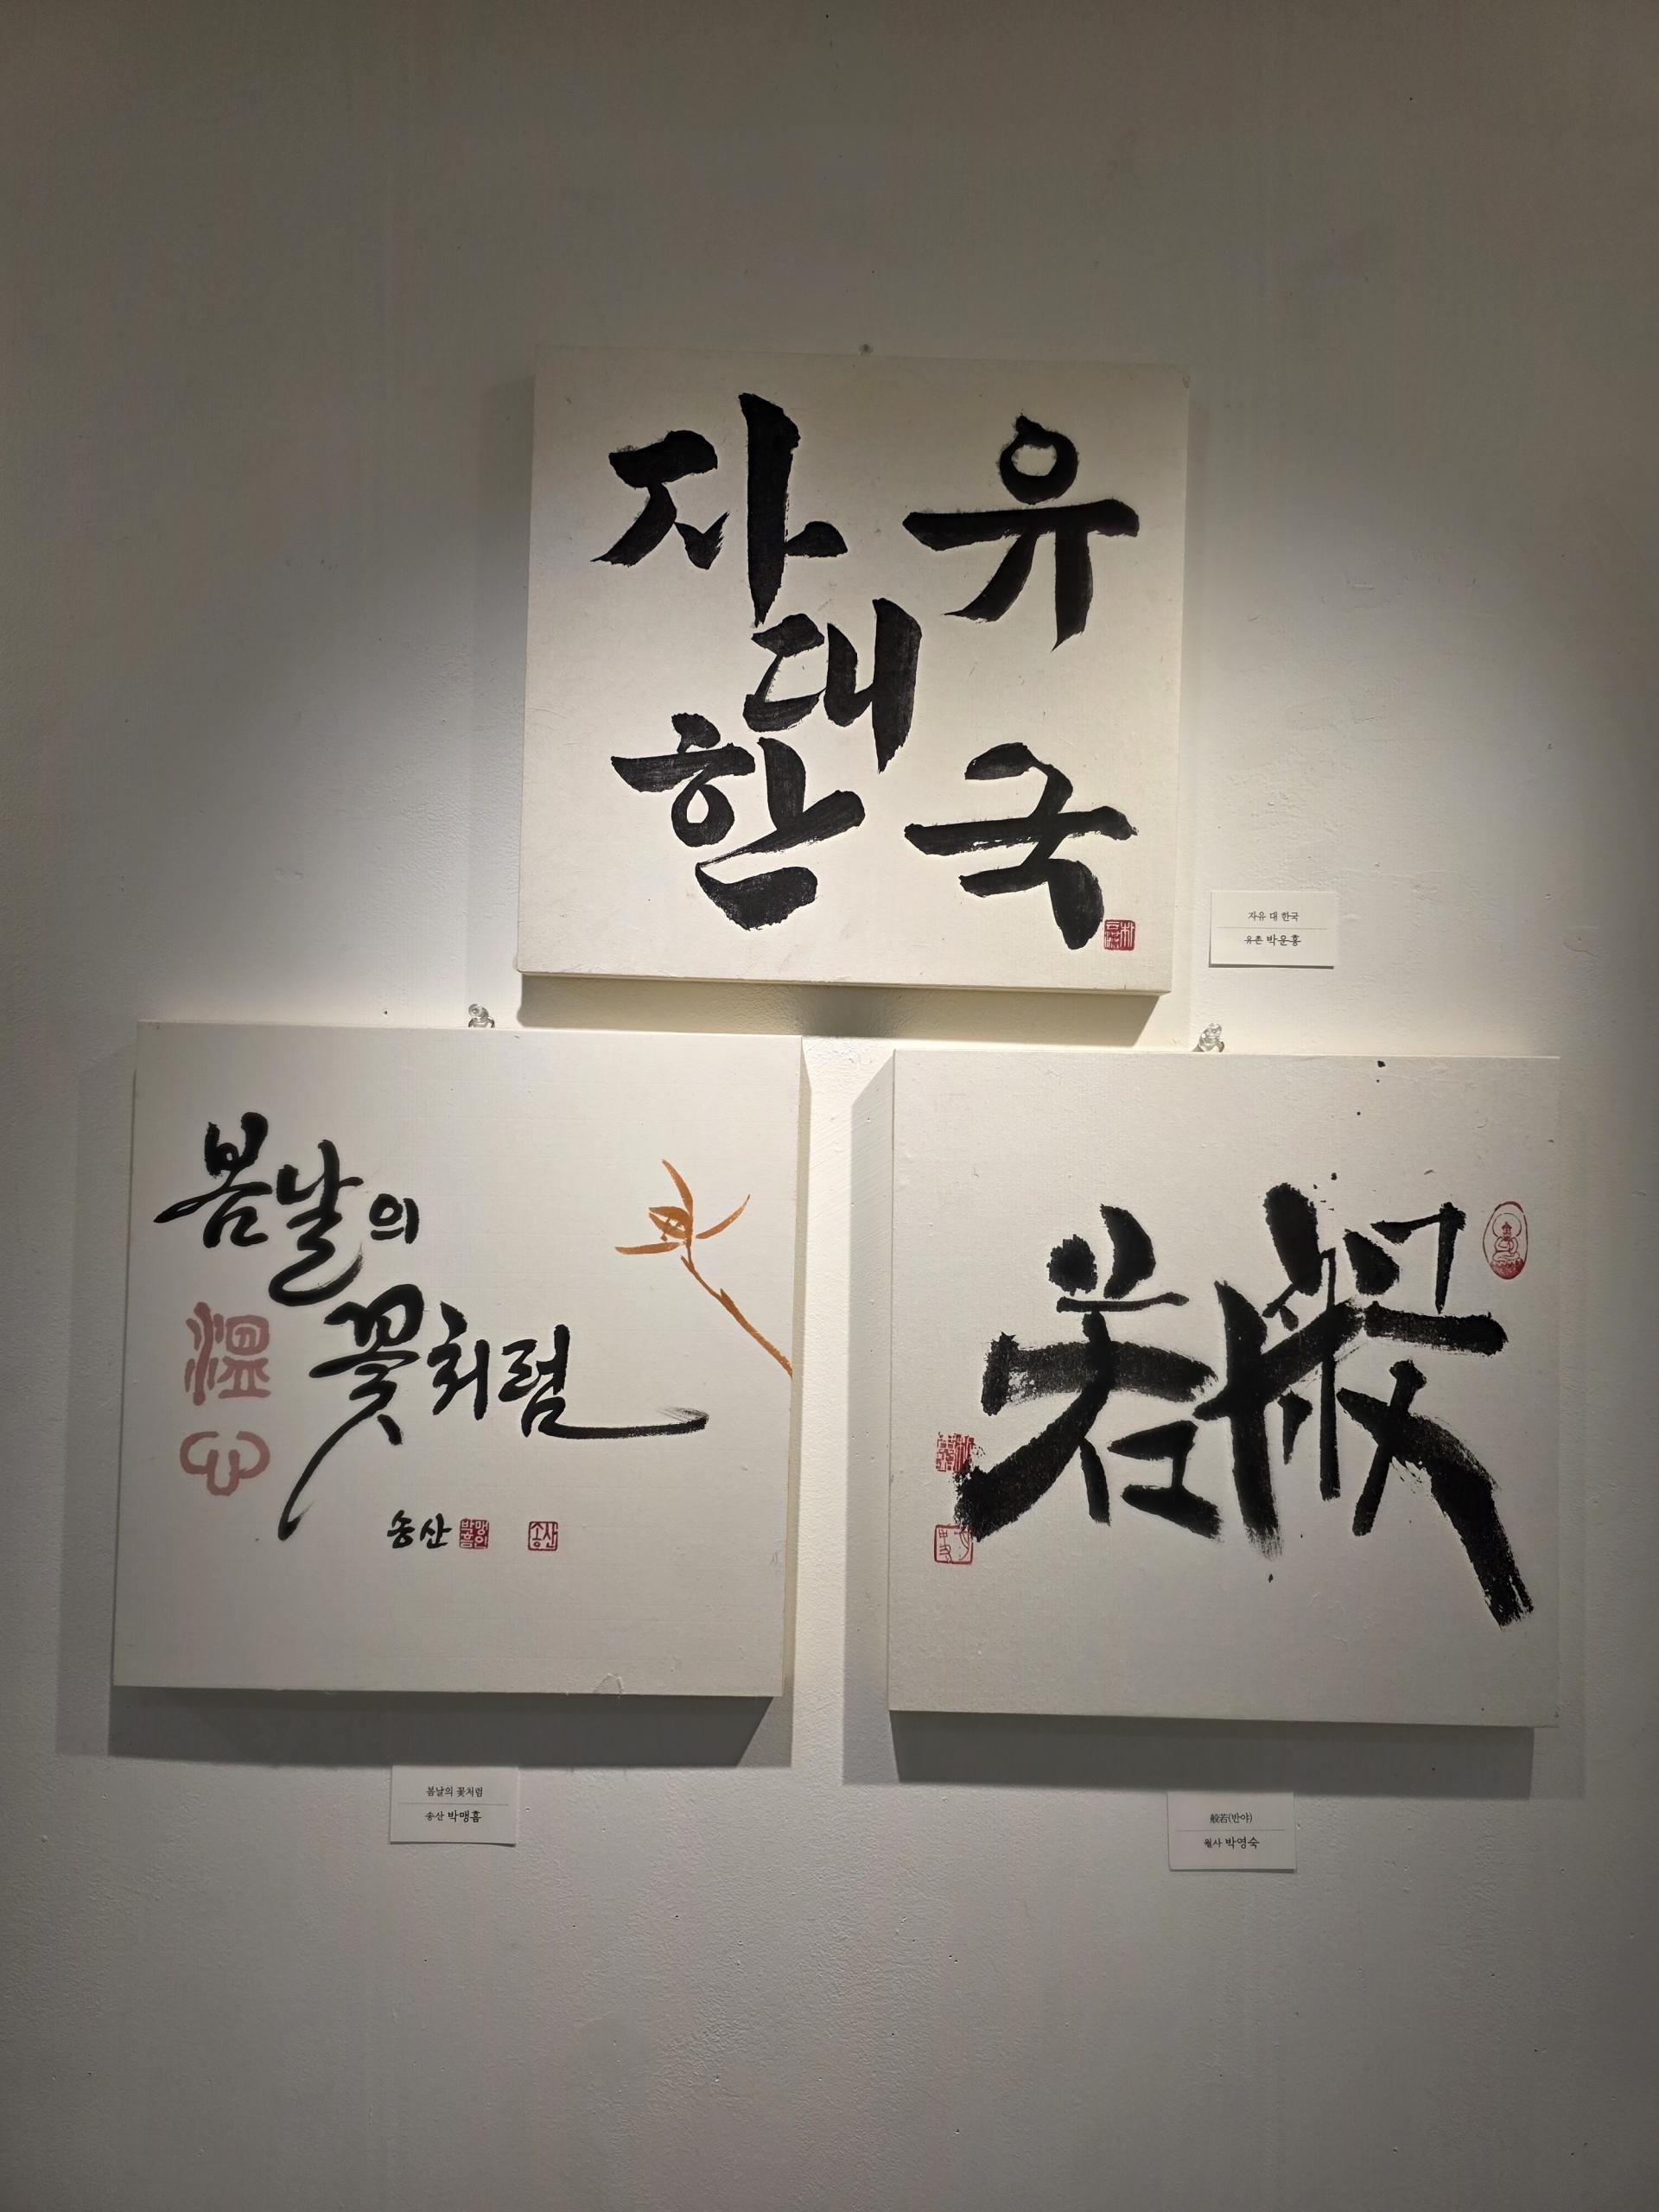 자유
대
한국
자유 대 한국
유촌 박운홍
봄날의
꽃처럼
溫
心
송산
송산
봄날의 꽃처럼
송산 박맹흠
般若
般若(반야)
월사 박영숙